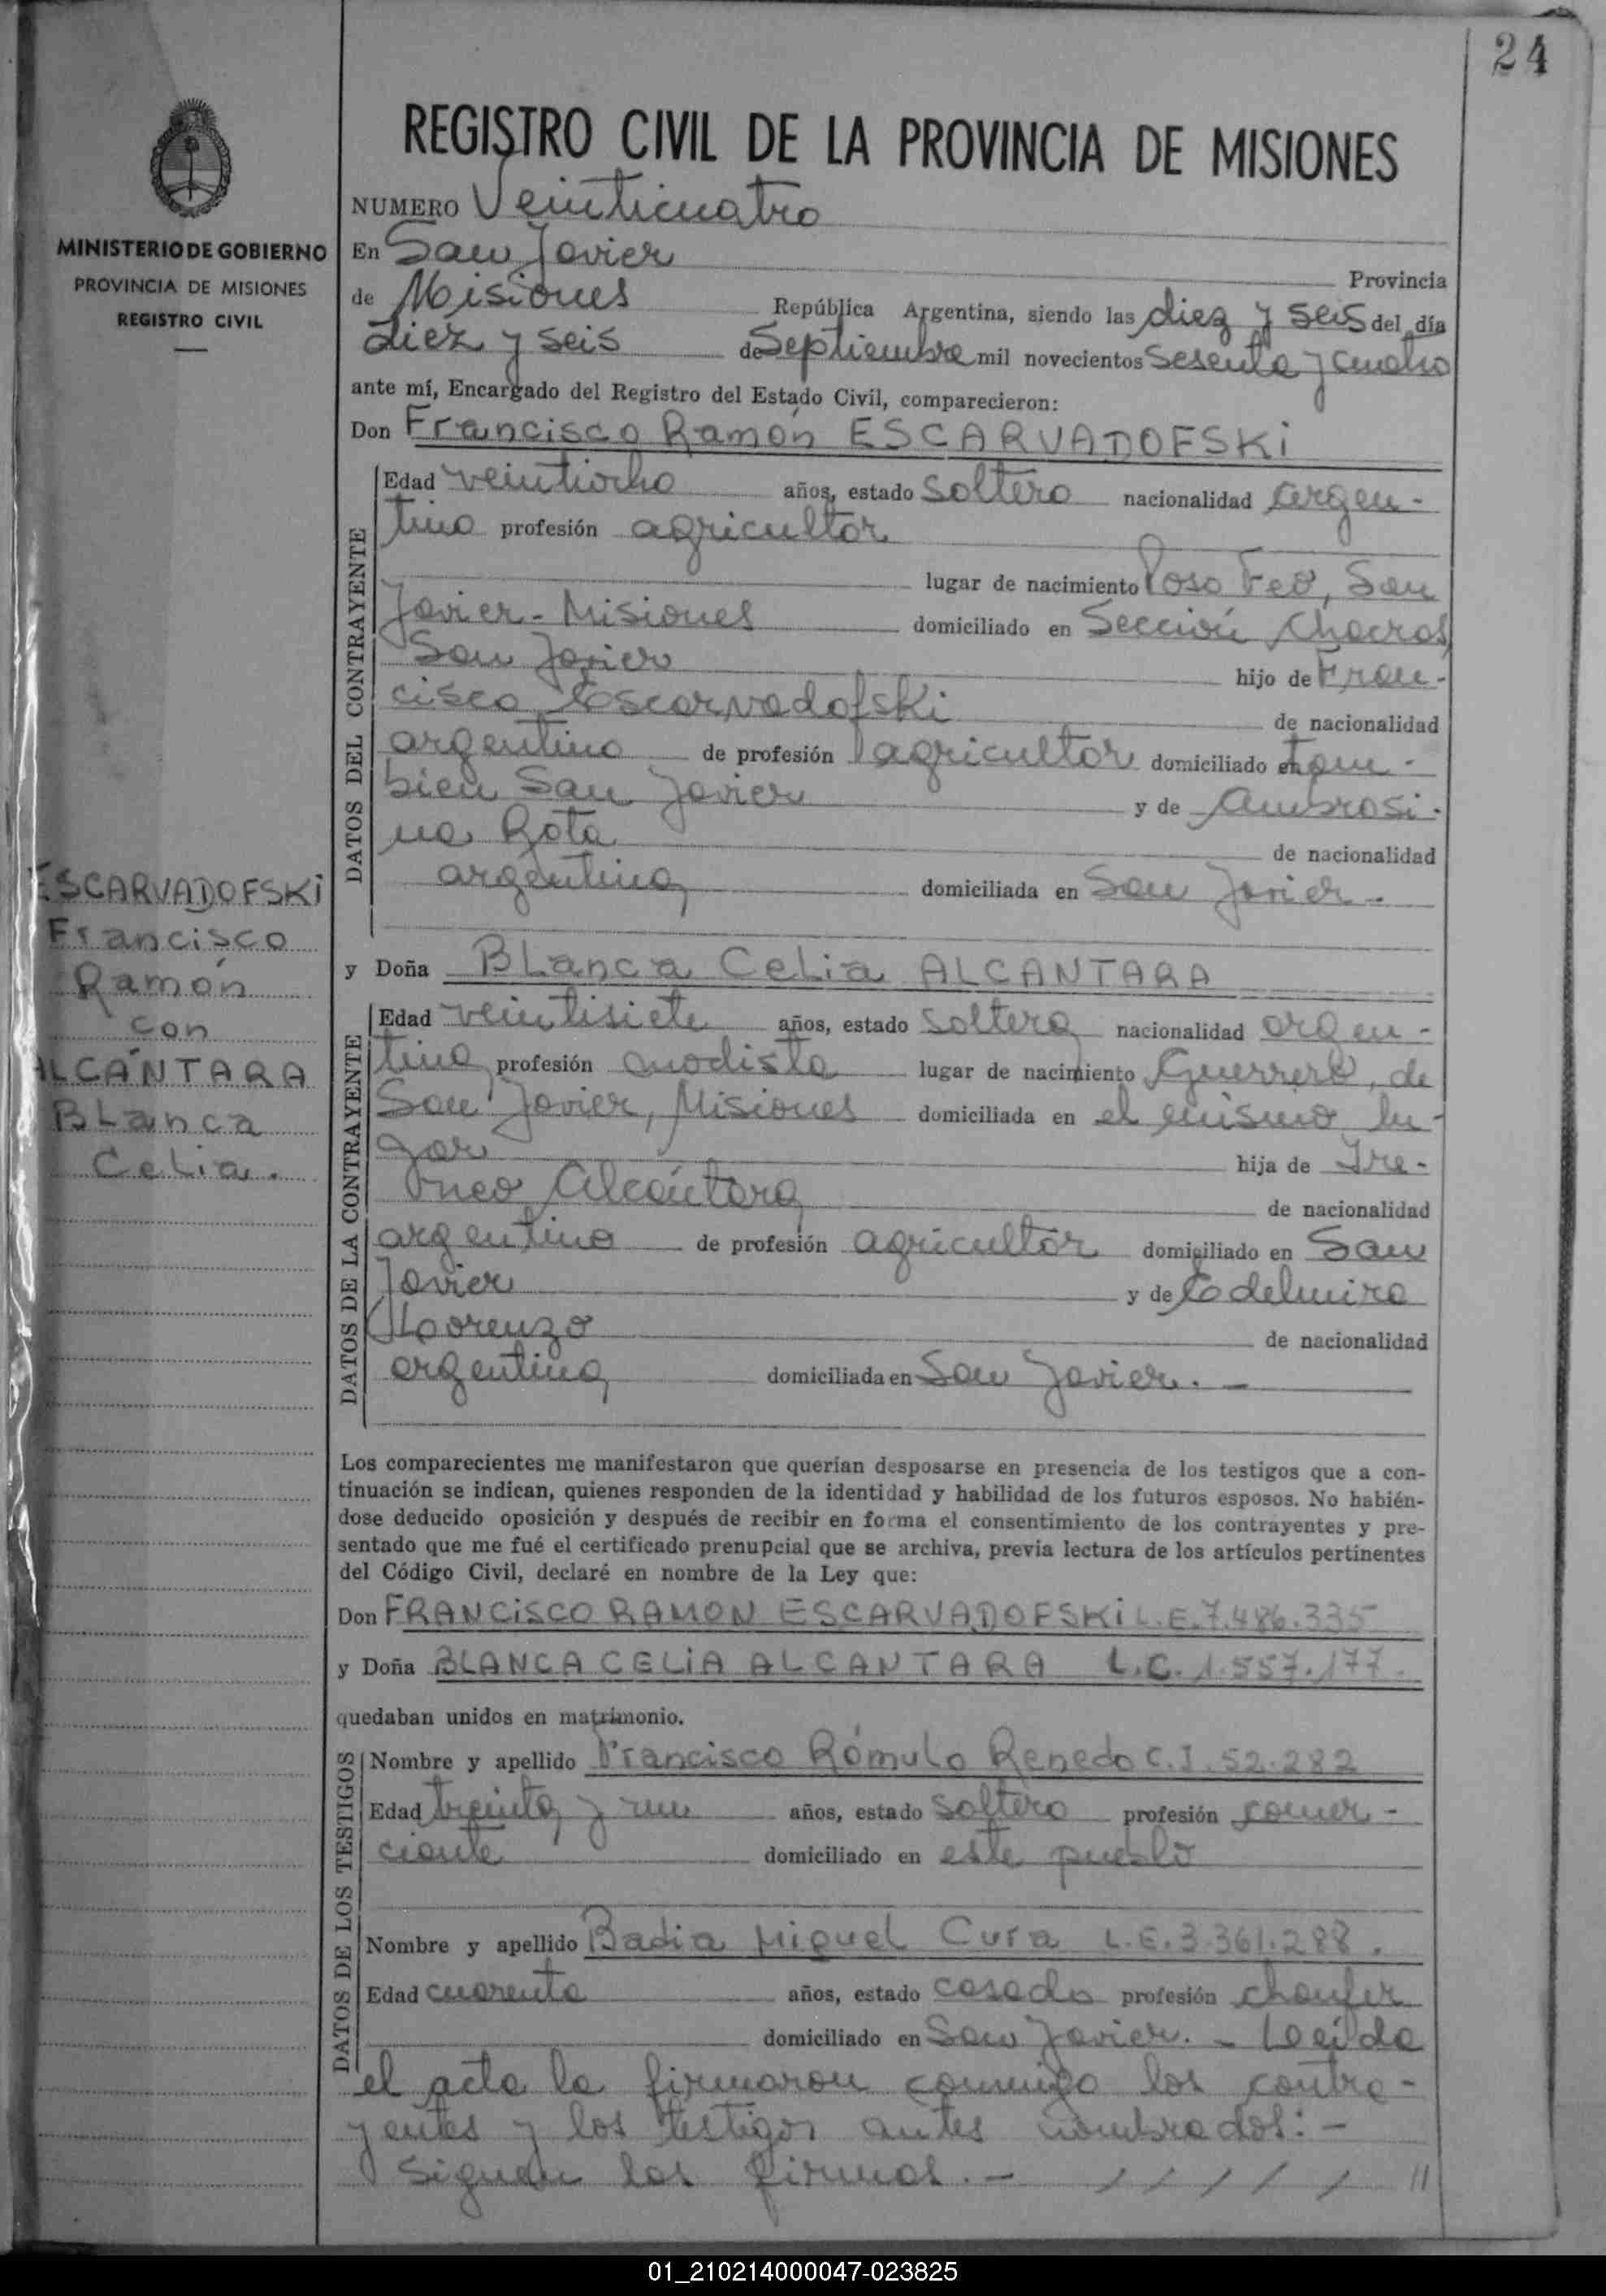 24
REGISTRO CIVIL DE LA PROVINCIA DE MISIONES
MINISTERIO DE GOBIERNO
PROVINCIA DE MISIONES
REGISTRO CIVIL
NUMERO Veinticuatro
En San Javier Provincia
de Misiones República Argentina, siendo las diez y seis del día
diez y seis de Septiembre mil novecientos sesenta y cuatro
ante mí, Encargado del Registro del Estado Civil, comparecieron:
Don Francisco Ramón ESCARVADOFSKi
DATOS DEL CONTRAYENTE
Edad veintiocho años, estado soltero nacionalidad argen-
tino profesión agricultor
lugar de nacimiento Poso Feo, San
Javier - Misiones domiciliado en Sección Chacras
San Javier hijo de Fran-
cisco Escarvadofski de nacionalidad
argentino de profesión agricultor domiciliado en tam-
bien San Javier y de Ambrosi-
na Rota de nacionalidad
argentina domiciliada en San Javier.-
ESCARVADOFSKi
Francisco
Ramón
con
ALCANTARA
BLanca
CeLia.
y Doña BLanca CeLia ALCANTARA
DATOS DE LA CONTRAYENTE
Edad veintisiete años, estado soltera nacionalidad argen-
tina profesión modista lugar de nacimiento Guerrero, de
San Javier, Misiones domiciliada en el mismo lu-
gar hija de Ire-
neo Alcántara de nacionalidad
argentino de profesión agricultor domiciliado en San
Javier y de Edelmira
Lorenzo de nacionalidad
argentina domiciliada en San Javier. -
Los comparecientes me manifestaron que querían desposarse en presencia de los testigos que a con-
tinuación se indican, quienes responden de la identidad y habilidad de los futuros esposos. No habién-
dose deducido oposición y después de recibir en forma el consentimiento de los contrayentes y pre-
sentado que me fué el certificado prenupcial que se archiva, previa lectura de los artículos pertinentes
del Código Civil, declaré en nombre de la Ley que:
Don FRANCiSCO RAMON ESCARVADOFSKi L.E. 7.486.335
y Doña BLANCA CELiA ALCANTARA L.C. 1.557.177.
quedaban unidos en matrimonio.
DATOS DE LOS TESTIGOS
Nombre y apellido Francisco Rómulo Renedo C.I. 52.282
Edad treinta y un años, estado soltero profesión comer-
ciante domiciliado en este pueblo
Nombre y apellido Badia Miguel Cura L.E. 3.361.288.
Edad cuarenta años, estado casado profesión chaufer
domiciliado en San Javier. - Leída
el acta la firmaron conmigo los contra-
yentes y los testigos antes nombrados: -
Siguen las firmas. - / / / / / //
01_210214000047-023825